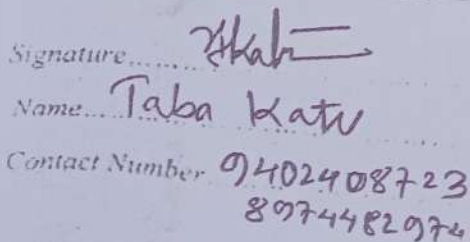 Signature..........
Name... Taba Katu
Contact Number 9402408723
8974482974